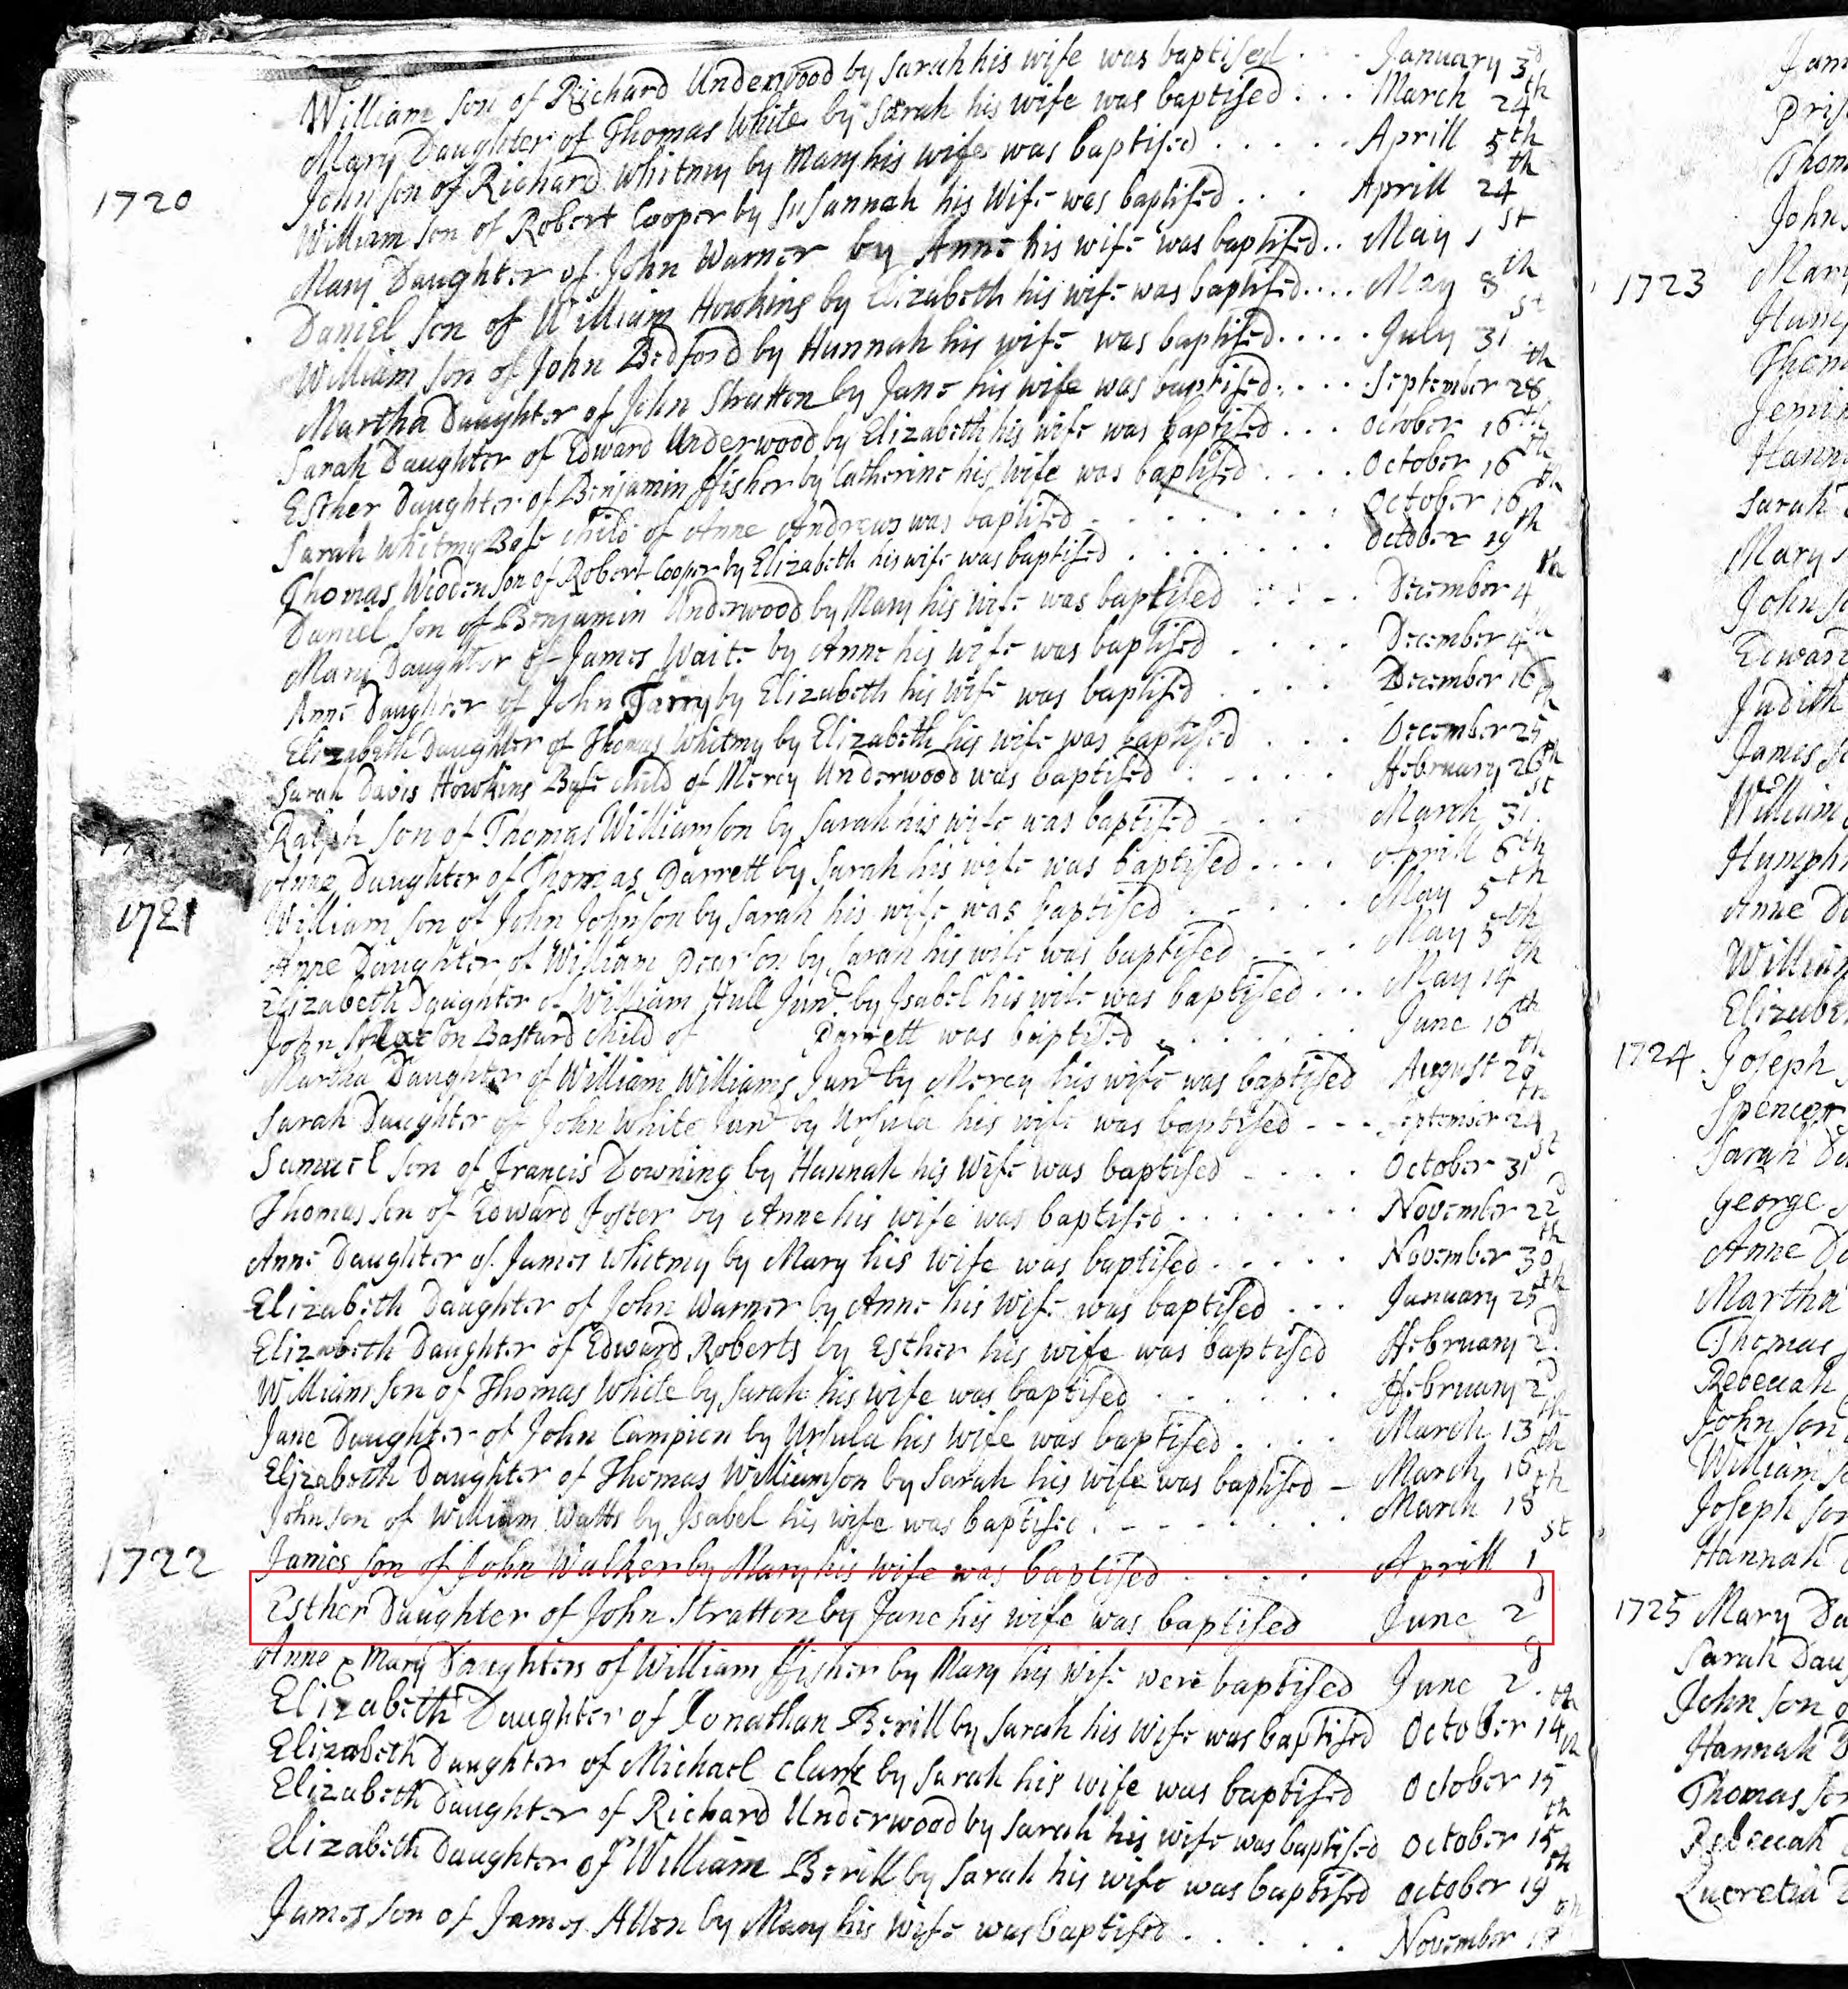 William son of Richard Underwood by Sarah his wife was baptised . . . January 3d
Mary Daughter of Thomas White by Sarah his wife was baptised . . . March 24th
John son of Richard Whitmy by Mary his wife was baptised . . . . . Aprill 5th
1720 William son of Robert Cooper by Susannah his Wife was baptised . . . Aprill 24th
Mary Daughter of John Warner by Anne his wife was baptised . . May 1st
Daniel son of William Howkins by Elizabeth his wife was baptised . . . . May 8th
William son of John Bedford by Hannah his wife was baptised . . . . . July 31st
Martha Daughter of John Stratton by Jane his wife was baptised . . . . September 28th
Sarah Daughter of Edward Underwood by Elizabeth his wife was baptised . . . October 16th
Esther Daughter of Benjamin ffisher by Catherine his Wife was baptised . . . . October 16th
Sarah Whitmy Base child of Anne Andrews was baptised . . . . . . . October 16th
Thomas Wooden son of Robert Cooper by Elizabeth his wife was baptised . . . . . . . October 19th
Daniel son of Benjamin Underwood by Mary his Wife was baptised . . . . December 4th
Mary Daughter of James Waite by Anne his wife was baptised . . . . December 4th
Anne Daughter of John Tarry by Elizabeth his Wife was baptised . . . . December 16th
Elizabeth Daughter of Thomas Whitmy by Elizabeth his wife was baptised . . . December 25th
Sarah Davis Howkins Base child of Mercy Underwood was baptised . . . . . ffebruary 26th
Ralph son of Thomas Williamson by Sarah his wife was baptised . . . March 31st
Anne Daughter of Thomas Darrett by Sarah his wife was baptised . . . . Aprill 6th
1721 William son of John Johnson by Sarah his wife was baptised . . . . . May 5th
Anne Daughter of William Pearson by Sarah his wife was baptised . . . . May 5th
Elizabeth Daughter of William Hull Junr by Isabel his wife was baptised . . . May 14th
John Bastard child of Darrett was baptised . . . . . . June 16th
Martha Daughter of William Williams Junr by Mercy his wife was baptised August 29th
Sarah Daughter of John White Junr by Ursula his wife was baptised - - - September 24th
Samuel son of Francis Downing by Hannah his Wife was baptised . . . . October 31st
Thomas son of Edward Foster by Anne his wife was baptised . . . . . . . November 22d
Anne Daughter of James Whitmy by Mary his wife was baptised . . . . . November 30th
Elizabeth Daughter of John Warner by Anne his Wife was baptised . . . January 25th
Elizabeth Daughter of Edward Roberts by Esther his wife was baptised ffebruary 2d
William son of Thomas White by Sarah his wife was baptised . . . . . . ffebruary 2d
Jane Daughter of John Campion by Ursula his Wife was baptised . . . . March 13th
Elizabeth Daughter of Thomas Williamson by Sarah his wife was baptised - March 16th
John son of William Watts by Isabel his wife was baptised . - - - . . . March 18th
1722 James son of John Walker by Mary his wife was baptised . . . . Aprill 1st
Esther Daughter of John Stratton by Jane his wife was baptised June 2d
Anne & Mary Daughters of William ffisher by Mary his Wife were baptised June 2d
Elizabeth Daughter of Jonathan Berill by Sarah his Wife was baptised October 14th
Elizabeth Daughter of Michael Clark by Sarah his wife was baptised October 15th
Elizabeth Daughter of Richard Underwood by Sarah his wife was baptised October 15th
Elizabeth Daughter of William Berill by Sarah his wife was baptised October 19th
James son of James Allen by Mary his Wife was baptised . . . . . November
John
1723 Mary
Thom
Hann
Sarah
Mary
John
Edward
Judith
James
William
Humph
Anne
William
1724 Joseph
Spencer
Sarah
George
Anne
Martha
Thomas
Rebeccah
John son
William
Joseph son
Hannah
1725 Mary
Sarah
John son
Hannah
Thomas
Rebeccah
Lucretia